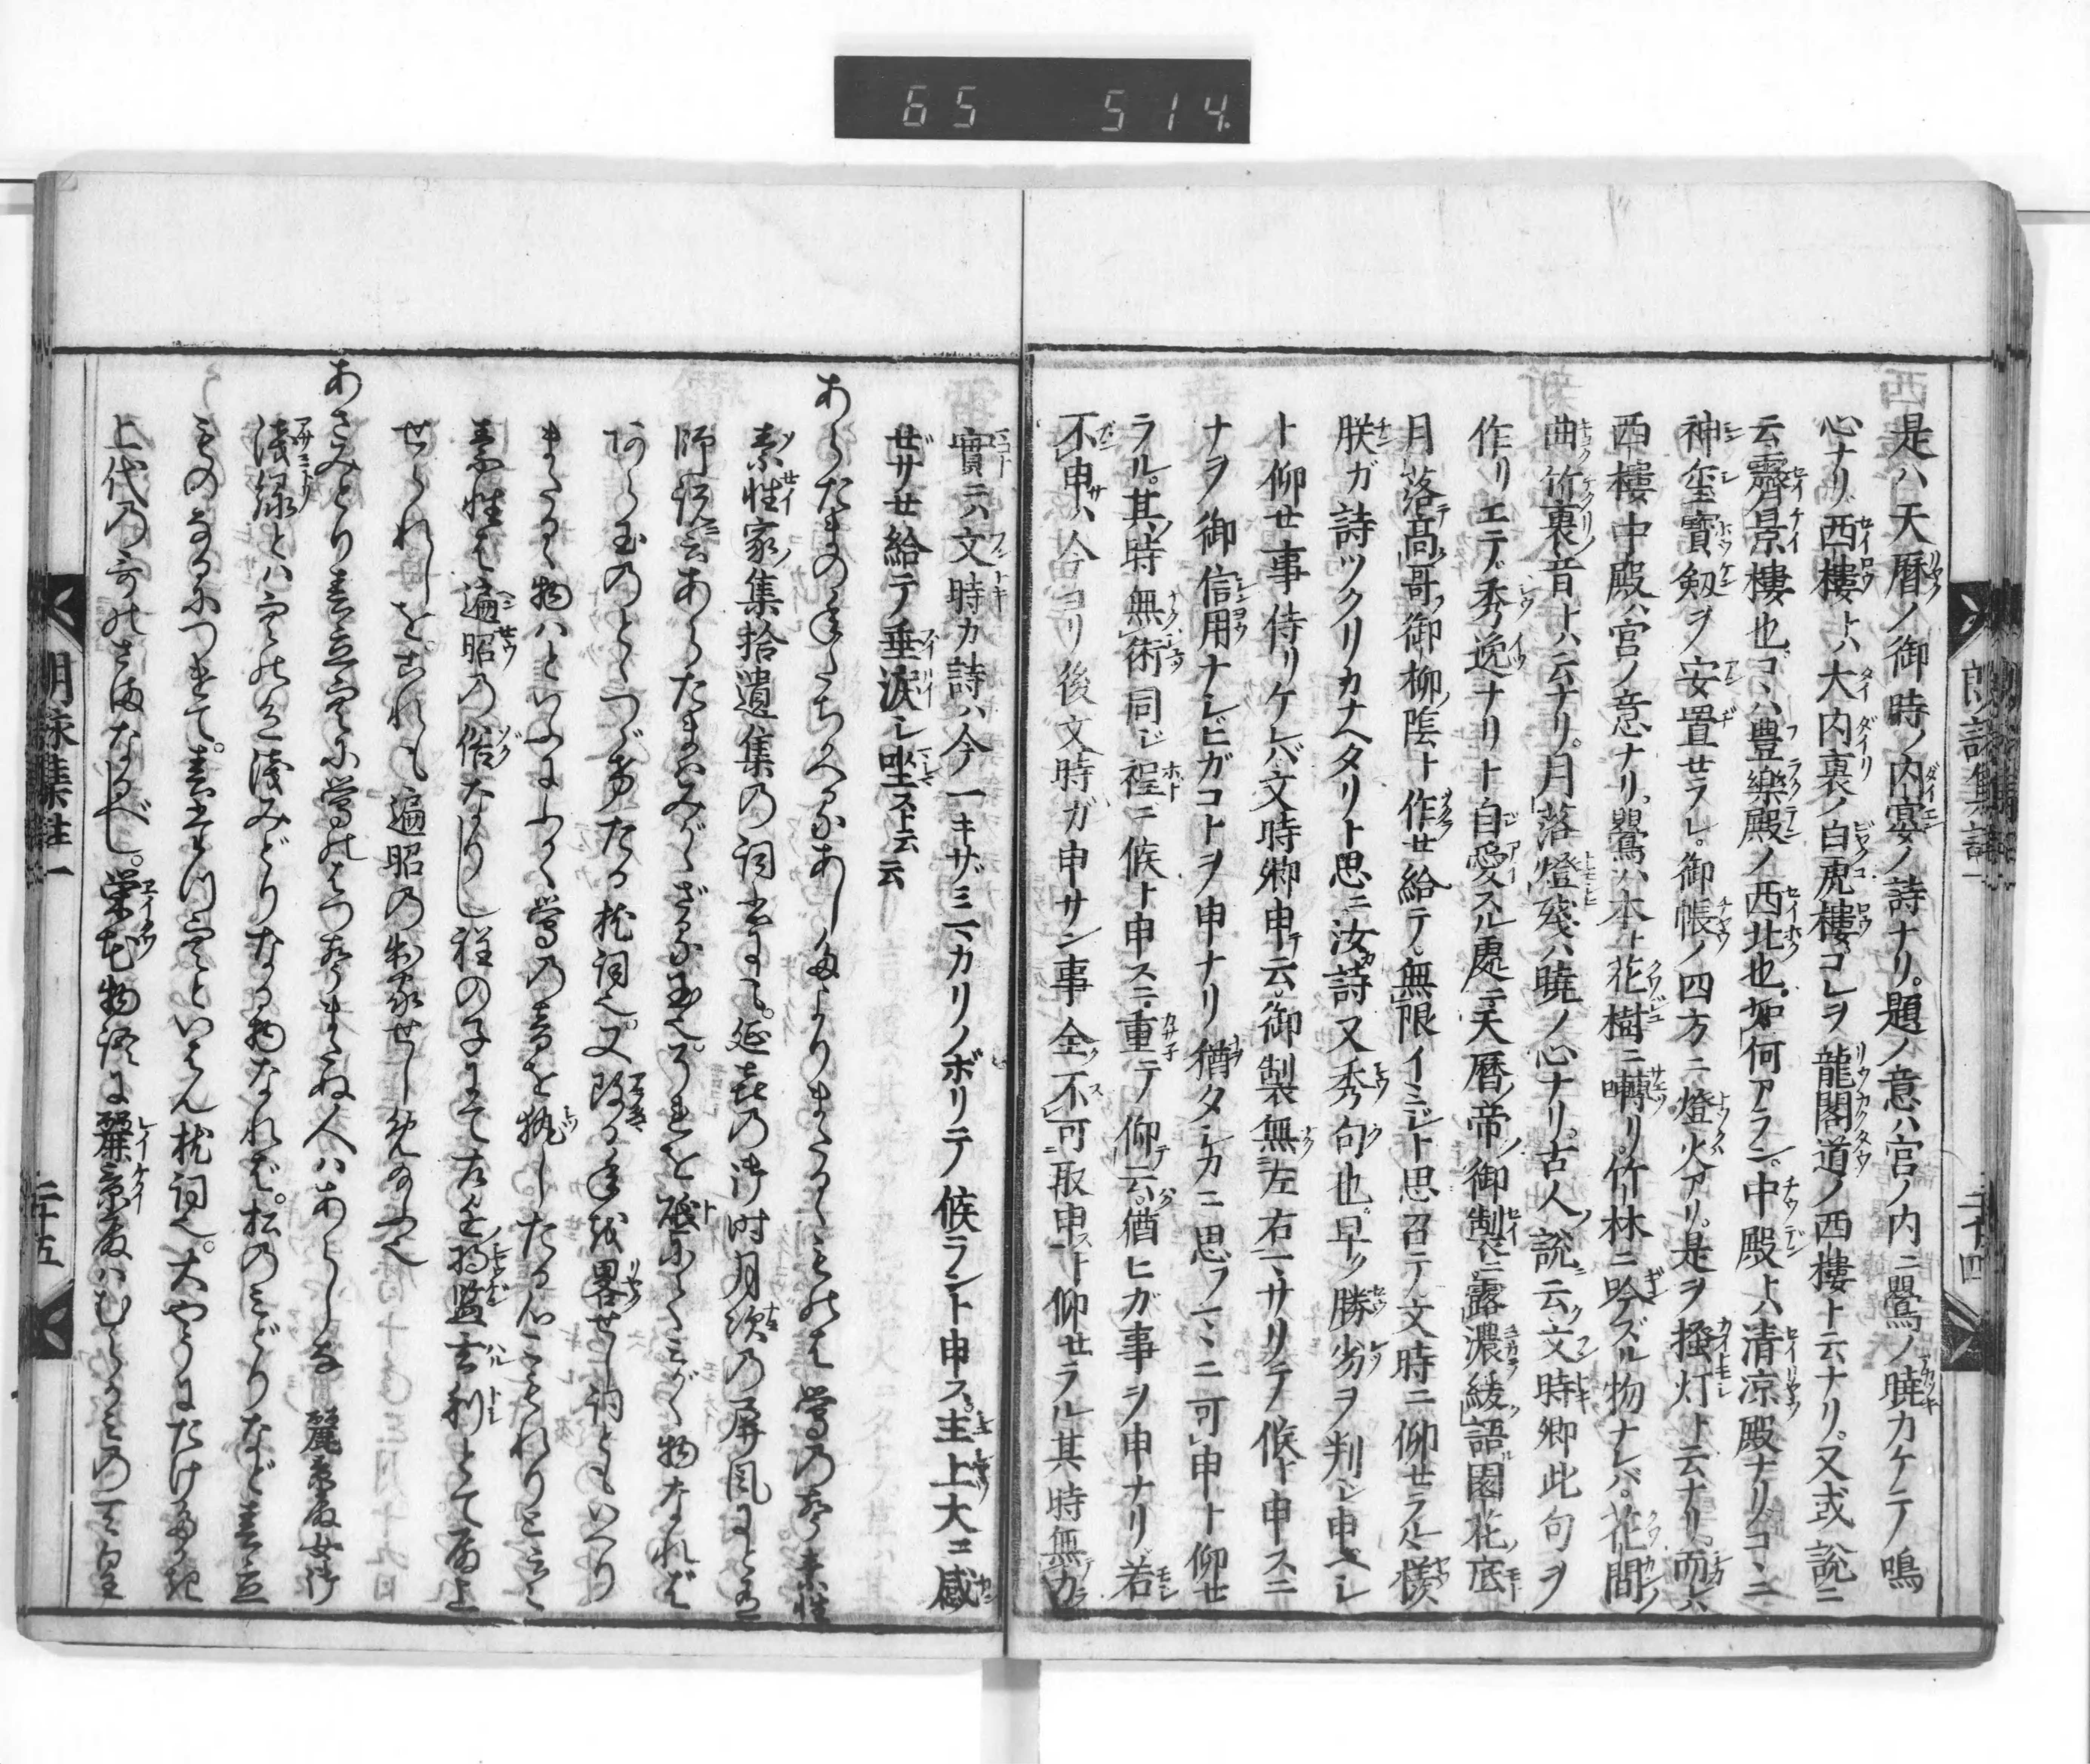 65 514
是ハ天暦ノ御時ノ内宴ノ詩ナリ。題ノ意ハ宮ノ内ニ鶯ノ暁カケテノ鳴
心ナリ西樓トハ大内裏ノ白虎樓コレヲ龍閣道ノ西樓ト云ナリ。又或説ニ
云霽景樓也コヽハ豊樂殿ノ西北也。如何アラン。中殿トハ清凉殿ナリコヽニ
神璽寶剱ヲ安置セラレ。御帳ノ四方ニ燈火アリ。是ヲ掻灯ト云ナリ。而レハ
西樓中殿ハ宮ノ意ナリ。鶯ハ本ト花樹ニ囀リ。竹林ニ吟ズル物ナレバ。花間
曲竹裏音トハ云ナリ。月落燈殘ハ暁ノ心ナリ。古人説云。文時卿此句ヲ
作リエテ秀逸ナリト自愛スル處ニ天暦ノ帝ノ御製ニ露濃緩語園花底
月落高哥御柳陰ト作セ給テ。無限イミジト思召テ文時ニ仰セラルヽ様
朕ガ詩ツクリカナヘタリト思ニ汝詩又秀句也。早ク勝劣ヲ判シ申ベシ
ト仰セ事侍リケレバ文時卿申テ云。御製無左右マサリテ候ト申スニ
ナヲ御信用ナシヒガコトヲ申ナリ猶タシカニ思フマヽニ可申ト仰セ
ラル。其時無術同ジ程ニ候ト申スニ重テ仰云。猶ヒガ事ヲ申ナリ若
不申サハ今ヨリ後文時ガ申サン事全不可取申ト仰セラル其時無力
朗詠集註一
二十四
實ニハ文時カ詩ハ今一キザミマカリノボリテ候ラント申ス。主上大ニ感
ゼサセ給テ垂涙シ坐スト云云
あらたまの年たちかへるあしたよりまたるゝものは鶯の声 素性
素性家集拾遺集の詞書には。延喜の御時月次の屏風にと有
師説云あらたまはみがゝざる玉也。それを砥にてみがく物なれば
あら玉のとゝつゞけたる枕詞也。又改る年越畧せし詞ともいへり
またるゝ物はといふにふかく鶯の音を執したる心こもれりと云々
素性は遍昭の俗なりし程の子にて左近将監玄利とて殿上
せられしを。これも遍昭の出家せし
あさみとり春立空に鶯のはつ声またぬ人はあらしな 麗景殿女御
浅緑とは空の色浅みどりなる物なれば。松のみどりなど春立
ものなるにつきて。春立つ空といはん枕詞也。大やうにたけ
上代の哥のさまなるべし。栄花物語に麗景殿は
朗詠集註一
二十五